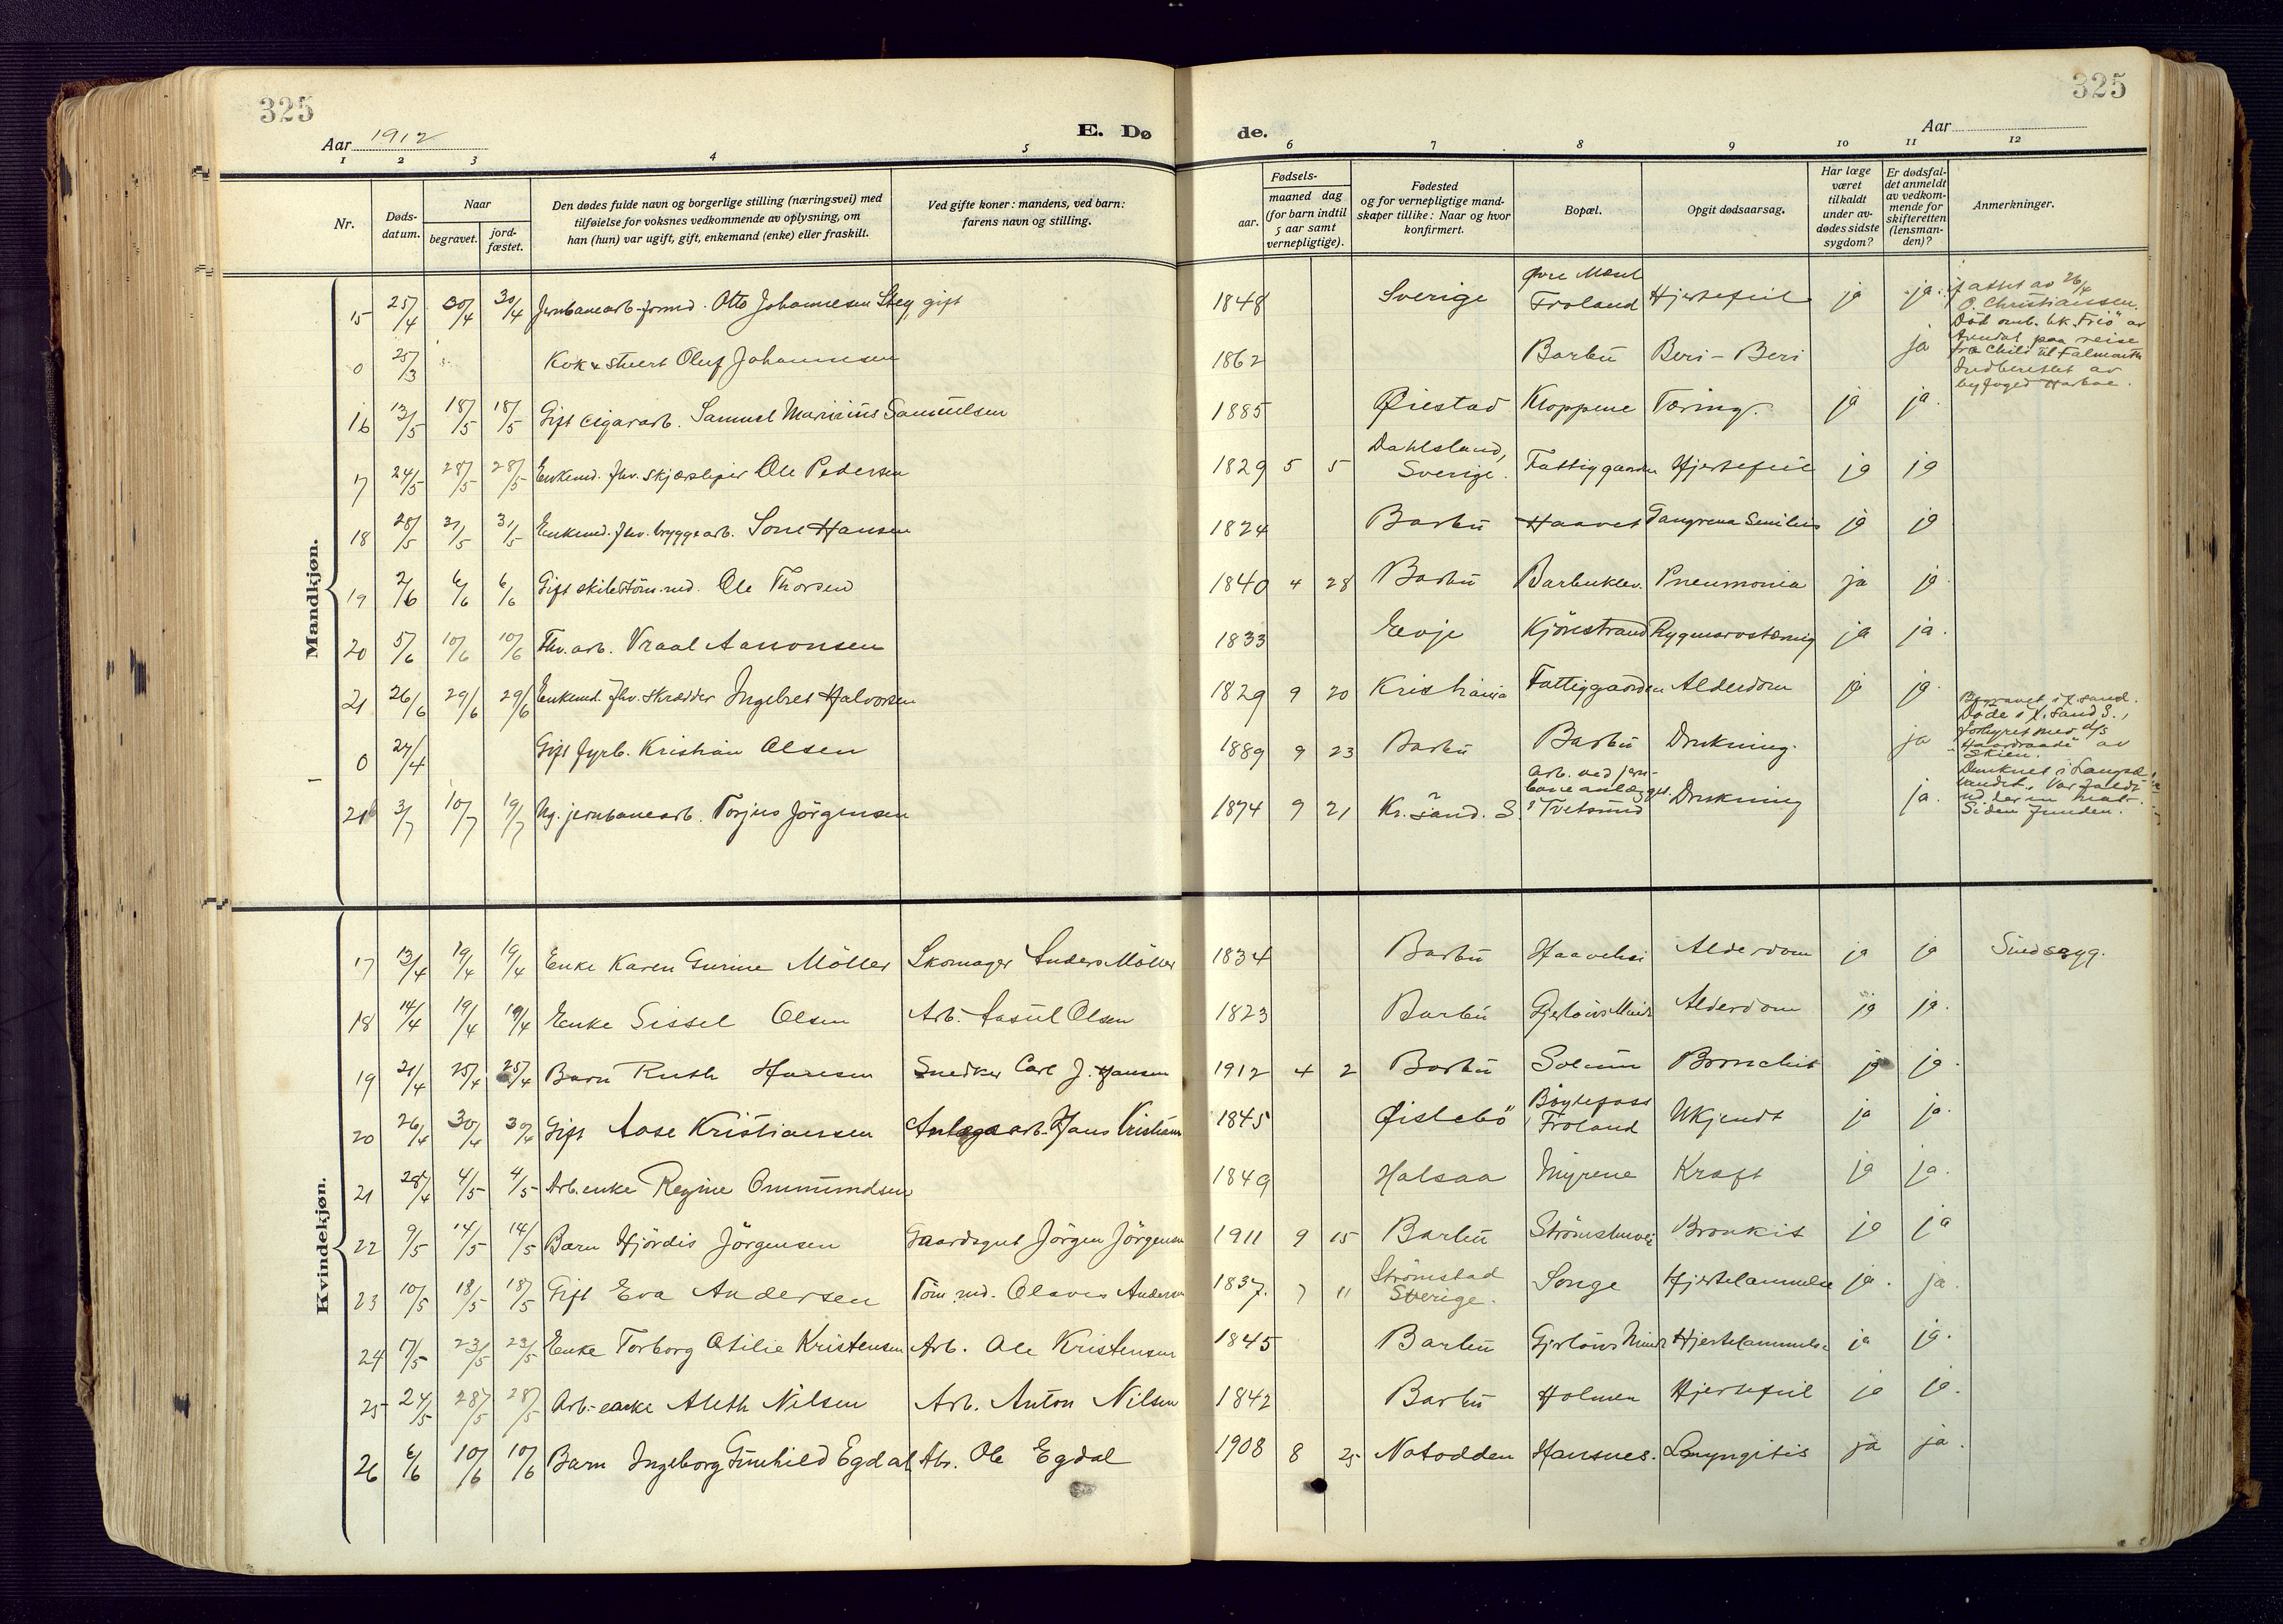 325
325
Aar 1912
E. Dø
de.
Aar
1 2 3 4 5
6 7 8 9 10 11 12
Nr.
Døds-
datum.
Naar
begravet.
jord-
fæstet.
Den dødes fulde navn og borgerlige stilling (næringsvei) med
tilføielse for voksnes vedkommende av oplysning, om
han (hun) var ugift, gift, enkemand (enke) eller fraskilt.
Ved gifte koner: mandens, ved barn:
farens navn og stilling.
Fødsels-
aar.
maaned dag
(for barn indtil
5 aar samt
vernepligtige).
Fødested
og for vernepligtige mand-
skaper tillike: Naar og hvor
konfirmert.
Bopæl.
Opgit dødsaarsag.
Har læge
været
tilkaldt
under av-
dødes sidste
sygdom?
Er dødsfal-
det anmeldt
av vedkom-
mende for
skifteretten
(lensman-
den)?
Anmerkninger.
Mandkjøn.
15 25/4 30/4 30/4 Jernbanearb.-formd. Otto Johannesen Steg gift 1848 Sverige Froland Hjertefeil ja ja. attest av 26/4
O. Christianssen.
0 25/3 Kok & stuert Oluf Johannesen 1862 Barbu Beri-Beri ja Død omb. bk. "Friö" av
Arendal paa reise
fra Chili til Falmouth
Indberettet av
byfoged
16 13/5 18/5 18/5 Gift cigararb. Samuel Maririus Samuelsen 1885 Øiestad Kloppene Tæring. ja ja.
17 24/5 28/5 28/5 Enkemd. fhv. skjærsliper Ole Pedersen 1829 5 5 Dahlsland,
Sverige. Fattiggaarden Hjertefeil ja ja
18 28/5 31/5 31/5 Enkemd. fhv. bryggearb. Sone Hansen 1824 Barbu Haavet Gangrena Senilis ja ja
19 2/6 6/6 6/6 Gift skibstöm.md. Ole Thorsen 1840 4 28 Barbu Barbuklev. Pneumonia ja ja.
20 5/6 10/6 10/6 Fhv. arb. Vraal Aanonsen 1833 Evje Kjönstrand Rygmarvstæring ja ja.
21 26/6 29/6 29/6 Enkemd. fhv. skrædder Ingebret Halvorsen 1829 9 20 Kristiania Fattiggaarden Alderdom ja ja.
0 27/4 Gift fyrb. Kristian Olsen 1889 9 23 Barbu Barbu Drukning. ja Begravet i X.sand.
Døde i X.sand S.,
forhyret med d/s
"Haardraade" av
Skien.
21b 3/7 10/7 19/7 Ug. jernbanearb. Torjus Jörgensen 1874 9 21 Kr. sand. S Arb. ved jern-
baneanlægget
i Tvetsund Drukning ja. Druknet i Langsæ
vandet. Var faldt
ud der en nat.
Siden funden.
Kvindekjøn.
17 13/4 19/4 19/4 Enke Karen Gurine Möller Skomager Anders Möller 1834 Barbu Haavehei Alderdom ja ja Sindssyg.
18 14/4 19/4 19/4 Enke Sissel Olsen Arb. Olsen 1823 Barbu Gjerlöws Minde Alderdom ja ja.
19 21/4 25/4 25/4 Barn Ruth Hansen Snedker Carl J. Hansen 1912 4 2 Barbu Solum Bronchit ja ja.
20 26/4 30/4 30/4 Gift Aase Kristiansen Anlægsarb. Hans Kristians 1845 Øislebö Böylefoss
Froland Ukjendt ja ja.
21 28/4 4/5 4/5 Arb.enke Regine Ommundsen 1849 Halsaa Myrene Kræft ja ja.
22 9/5 14/5 14/5 Barn Hjördis Jörgensen Gaardsgut Jörgen Jörgensen 1911 9 15 Barbu Strömsbuvei Bronkit ja ja
23 10/5 18/5 18/5 Gift Eva Andersen Töm.md. Olaves Andersen 1837. 7 11 Strömstad
Sverige. Songe Hjertelammelse ja. ja.
24 17/5 23/5 23/5 Enke Torborg Otilie Kristensen Arb. Ole Kristensen 1845 Barbu Gjerlöws Minde Hjertelammelse ja ja.
25 24/5 28/5 28/5 Arb.-enke Aleth Nilsen Arb. Anton Nilsen 1842 Barbu Holmen Hjertefeil ja ja.
26 6/6 10/6 10/6 Barn Ingeborg Gunhild Egdal Ab. Ole Egdal 1908 8 25 Notodden Hansnes. Laryngitis ja ja.